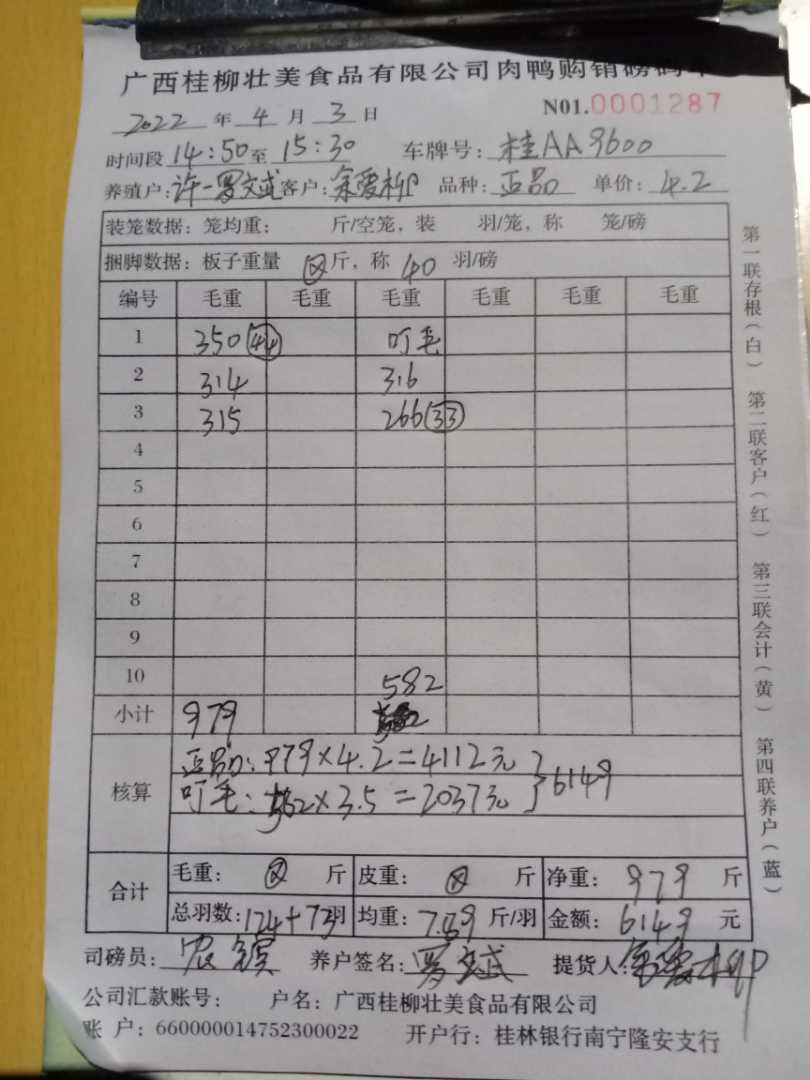 广西桂柳壮美食品有限公司肉鸭购销磅码单
2022 年 4 月 3 日 N01.0001287
时间段 14:50 至 15:30 车牌号: 桂AA9600
养殖户: 许一罗文斌 客户: 余爱柳 品种: 正品 单价: 4.2
装笼数据: 笼均重: 斤/空笼, 装 羽/笼, 称 笼/磅
捆脚数据: 板子重量 斤, 称 40 羽/磅
编号 毛重 毛重 毛重 毛重 毛重 毛重
1 350(44) 叮毛
2 314 316
3 315 266(33)
4
5
6
7
8
9
10 582
小计 979
核算
正品: 979×4.2=4112元
叮毛: 582×3.5=2037元 }6149
合计
毛重: 斤 皮重: 斤 净重: 979 斤
总羽数: 124+73羽 均重: 7.89 斤/羽 金额: 6149 元
司磅员: 农 养户签名: 罗文斌 提货人: 余爱柳
公司汇款账号: 户名: 广西桂柳壮美食品有限公司
账 户: 660000014752300022 开户行: 桂林银行南宁隆安支行
第一联存根(白) 第二联客户(红) 第三联会计(黄) 第四联养户(蓝)